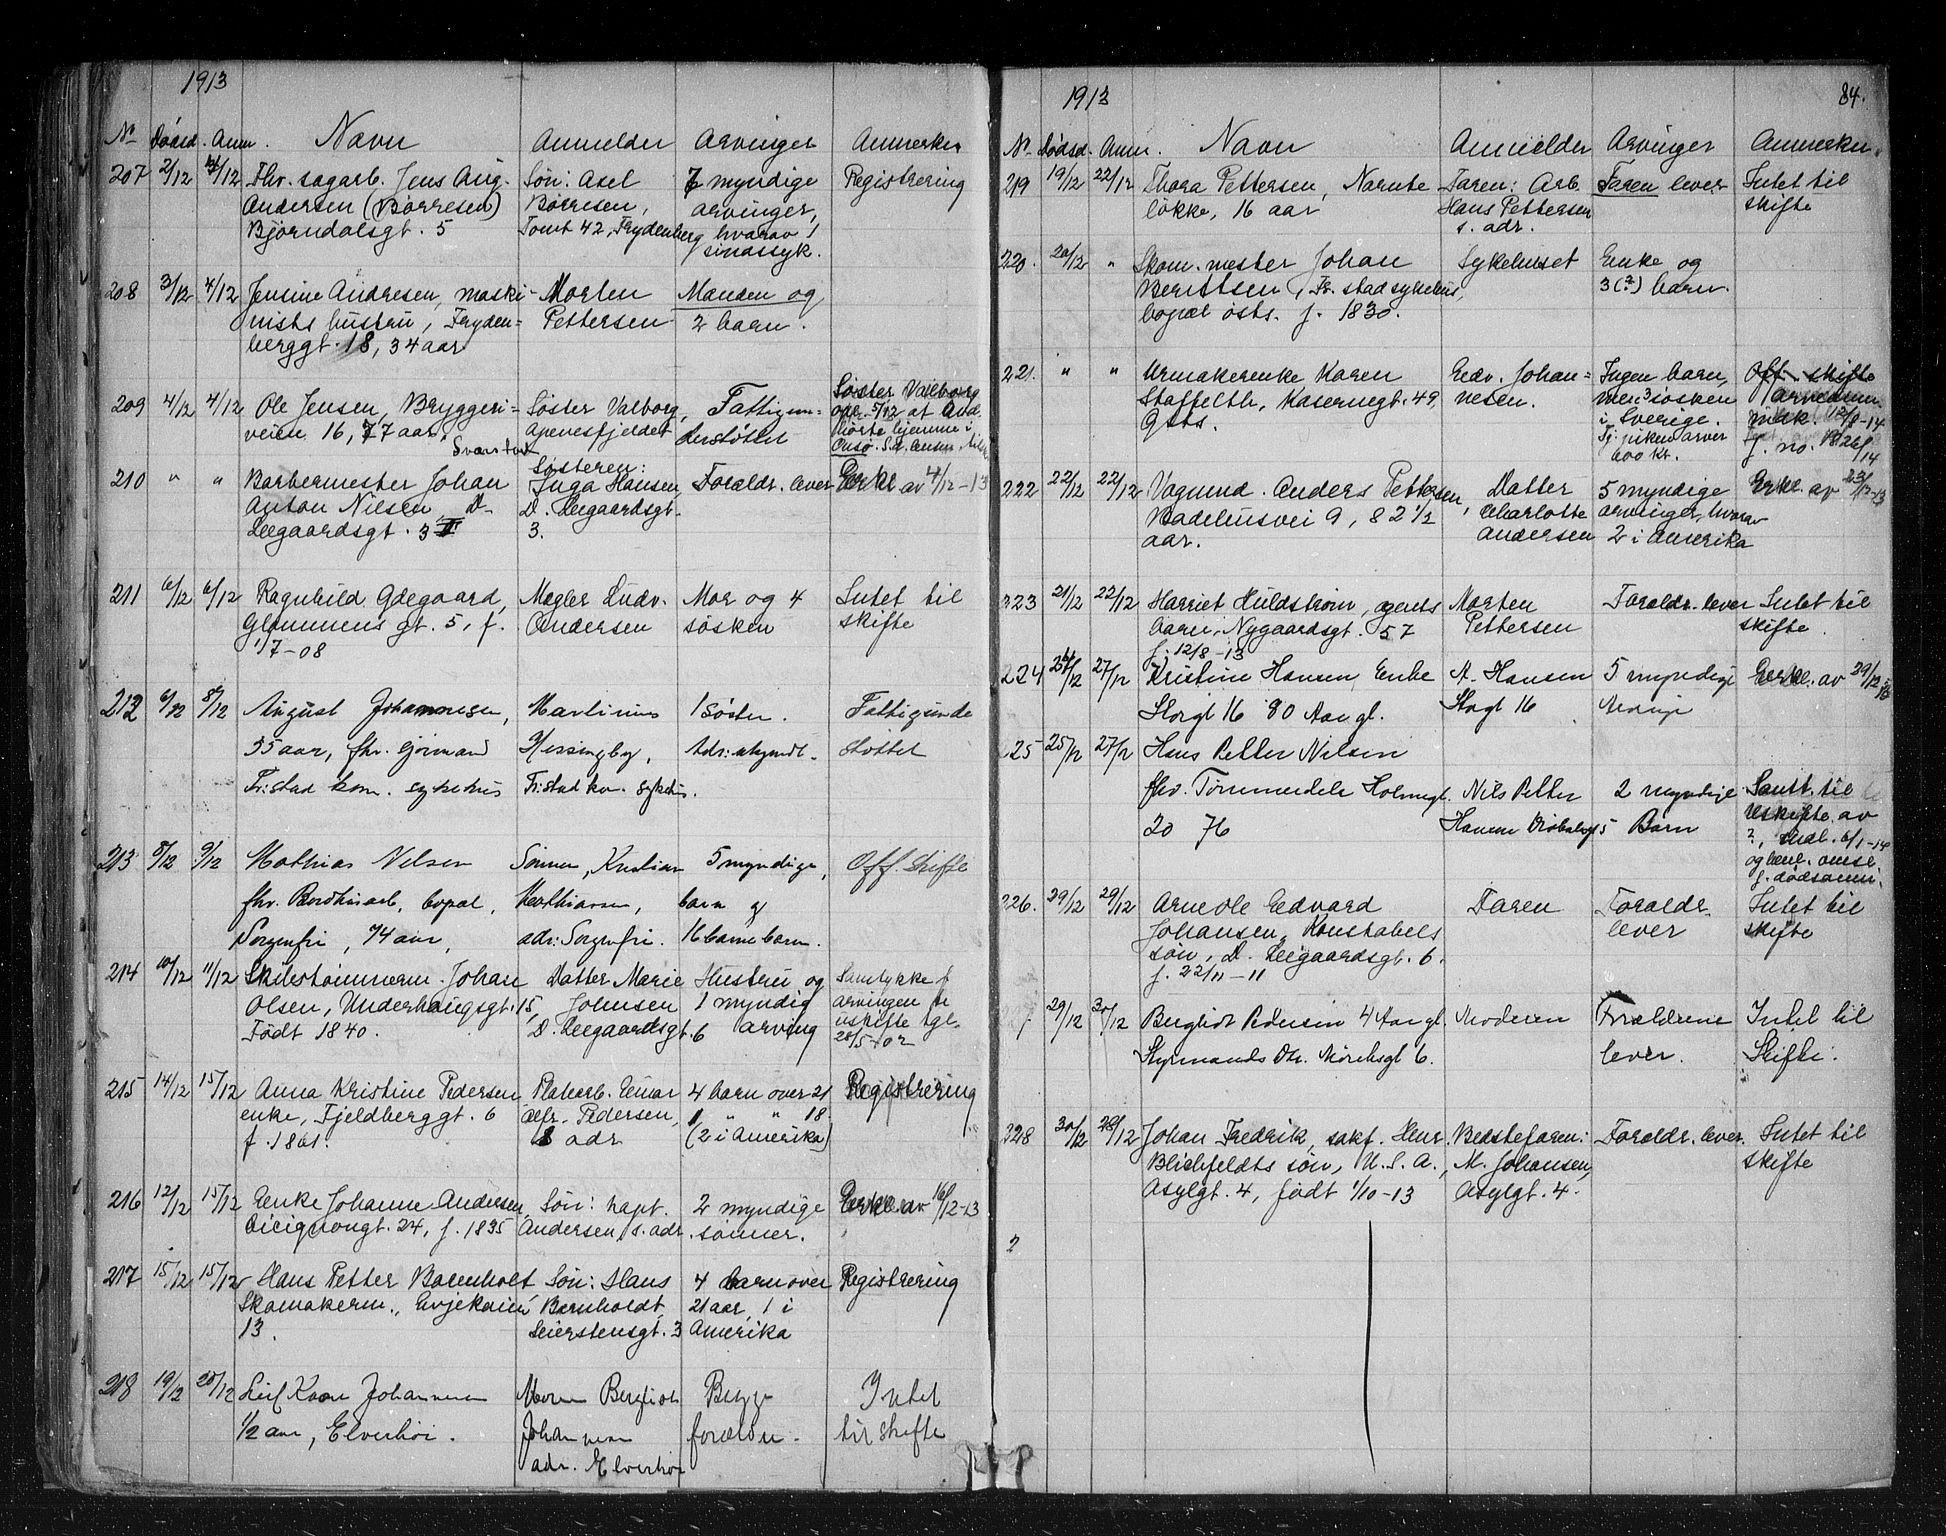 1913
No Dödsd. Anm. Navn Anmelder Arvinger Anmerkn
207 2/12 4/12 Fhv. sagarb. Jens Aug. Søn: Axel 7 myndige Registrering
Andersen (Børresen) Børresen, arvinger,
Bjørndalsgt. 5 Tomt 42, Frydenberg hvorav 1
sindssyk.
208 3/12 4/12 Jensine Andresen, maski- Morten Manden og
nists hustru, Fryden- Pettersen 2 barn.
berggt. 18, 34 aar
209 4/12 4/12 Ole Jensen, Bryggeri- Søster Valborg, Fattigun- Søster Valborg
veien 16, 77 aar, Apenesfjeldet derstøttet opr. 5/12 at
hørte hjemme i
Onsø.
210 " " Barbermester Johan Søsteren: Foraldr. lever Erkl av 4/12-13
Anton Nilsen, D. Inga Hansen,
Leegaardsgt. 3 II D. Leegaardsgt.
3.
211 6/12 6/12 Ragnhild Ødegaard, Megler Ludv. Mor og 4 Intet til
Glommens gt. 5, f. Andersen søsken skifte
1/7-08
212 6/12 8/12 August Johannesen, Martinius 1 søster. Fattigunder
55 aar, fhv. Hessingby, Adr: ukjendt. støttet
Fr.stad kom. sykehus Fr.stad ko. sykehus.
213 8/12 9/12 Mathias Nilsen Sønnen, Kristian 5 myndige, Off. Skifte
fhv. bopæl, Mathiasen, barn og
Sorgenfri, 74 aar, adr: Sorgenfri. 16 barnebarn.
214 10/12 11/12 Skibstømmerm. Johan Datter Marie Hustru og Samtykke f
Olsen, Underhaugsgt. 15, Johnsen 1 myndig arvingen te
Født 1840. D. Leegaardsgt. 6 arving uskifte tgl.
28/5-02
215 14/12 15/12 Anna Kristine Pedersen Platearb. Einar 4 barn over 21 Registrering
enke, Fjeldberggt. 6 Alfr. Pedersen, 1 " " 18.
f. 1861. s adr (2 i Amerika)
216 12/12 15/12 Enke Johanne Andersen, Søn: kapt. 2 myndige Erkl av 16/12-13
Cicignongt. 24, f. 1835 Andersen, s. adr. sønner.
217 15/12 15/12 Hans Petter Barnholt Søn: Hans 4 barn over Registrering
Skomakerm., Evjekaien Barnholdt, 21 aar, 1 i
13. Seierstensgt. 3 Amerika
218 19/12 20/12 Leif Kaare Johannesen Moren Bergliot Begge Intet
1/2 aar, Elverhøi. Johannesen forældre. til skifte
adr. Elverhøi
1913 84.
No Dödsd. Anm. Navn Anmelder Arvinger Anmerkn.
219 19/12 22/12 Thora Pettersen, Narnte Faren: Arb. Faren lever Intet til
løkke, 16 aar, Hans Pettersen skifte
s. adr.
220. 20/12 " Skom. mester Johan Sykehuset Enke og
Berntsen, Fr. stad sykehus, 3(?) barn.
bopæl østs. f. 1830.
221. " " Urmakerenke Karen Edv. Johan- Ingen barn, Off. skifte
Staffeldt, Kasernegt. 49, nesen. men 3 søsken
Østs. i Sverige.
Tj. piken arver f. no.
600 kr.
222 22/12 22/12 Vognmd. Anders Pettersen, Datter 5 myndige Erkl. av 23/12-13
Badehusvei 9, 82 1/2 Charlotte arvinger, hvorav
aar. Andersen 2 i Amerika
223 21/12 22/12 Harriet Huldstrøm, agents Morten Foraldr. lever Intet til
barn, Nygaardsgt. 57 Pettersen skifte.
f. 12/8-13
224 26/12 27/12 Kristine Hansen Enke A. Hansen 5 myndige Erkl. av 29/12-13
Storgt 16 80 Aar gl. Storgt 16 Arvinge
225 25/12 27/12 Hans Petter Nilsen
fhv. Tømmerdeler Holmegt. Nils Petter 2 myndige Samt. til
20 76 Hansen 5 Barn uskifte av
?, tinl. 6/1-14
f. dødsanm.
226. 29/12 29/12 Arne Ole Edvard Faren Foraldr. Intet til
Johansen, Konstabels lever skifte
søn, D. Leegaardsgt. 6.
f. 22/11-11
29/12 30/12 Bergliot Pedersen 4 Aar gl. Moderen Forældrene Intet til
Styrmands Dtr. Mørchsgt 6. lever. Skifte.
228 30/12 28/12 Johan Fredrik, sakf. Henr. Bedstefaren: Foraldr. lever. Intet til
Blichfeldts søn, U.S.A., M. Johansen, skifte
Asylgt. 4, født 1/10-13 Asylgt. 4.
2